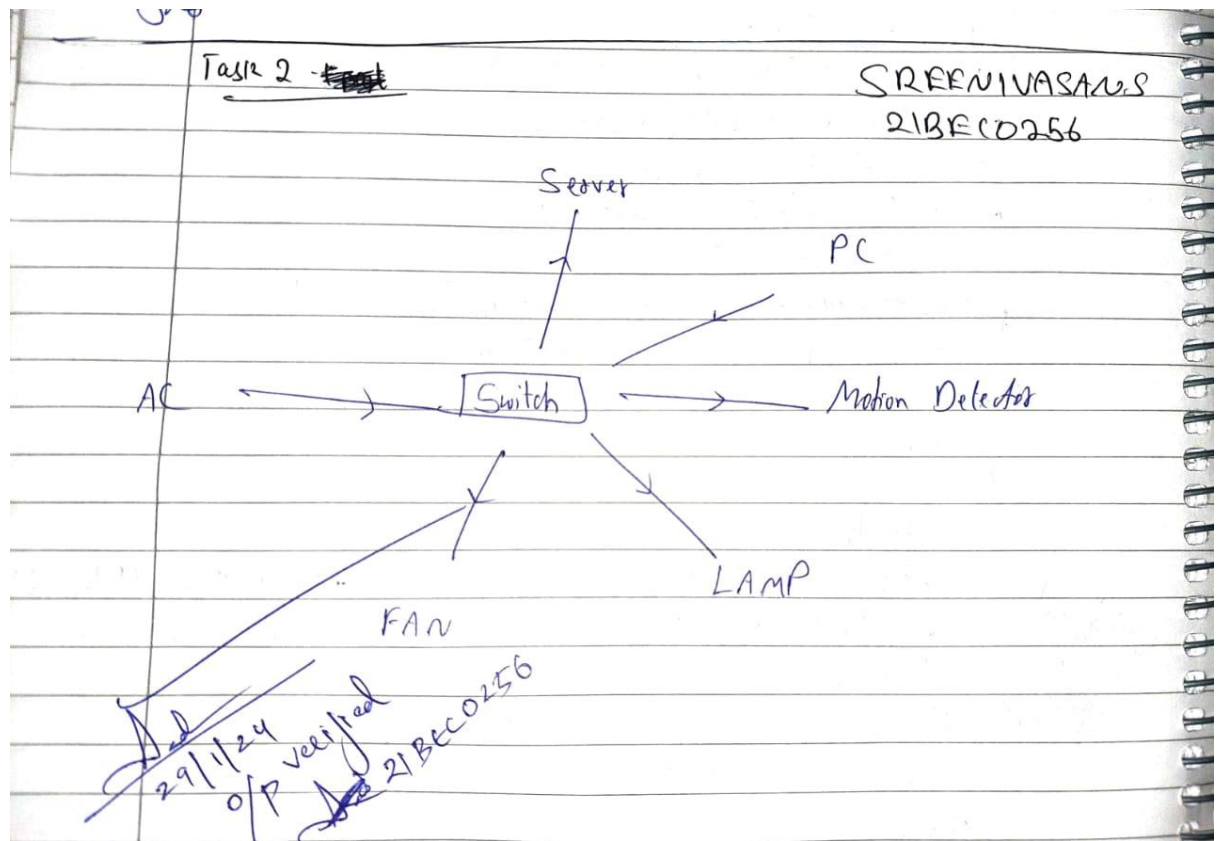 Task 2
SREENIVASAN.S
21BEC0256
Server
PC
AC
Switch
Motion Detector
LAMP
FAN
29/1/24
O/P verified
21BEC0256